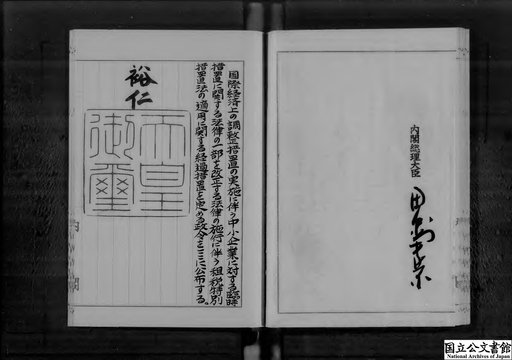 国際経済上の調整措置の実施に伴う中小企業に対する臨時
措置に関する法律の一部を改正する法律の施行に伴う租税特別
措置法の適用に関する経過措置を定める政令をここに公布する。
裕仁
天皇
御璽
内閣総理大臣
田中角栄
国立公文書館
National Archives of Japan